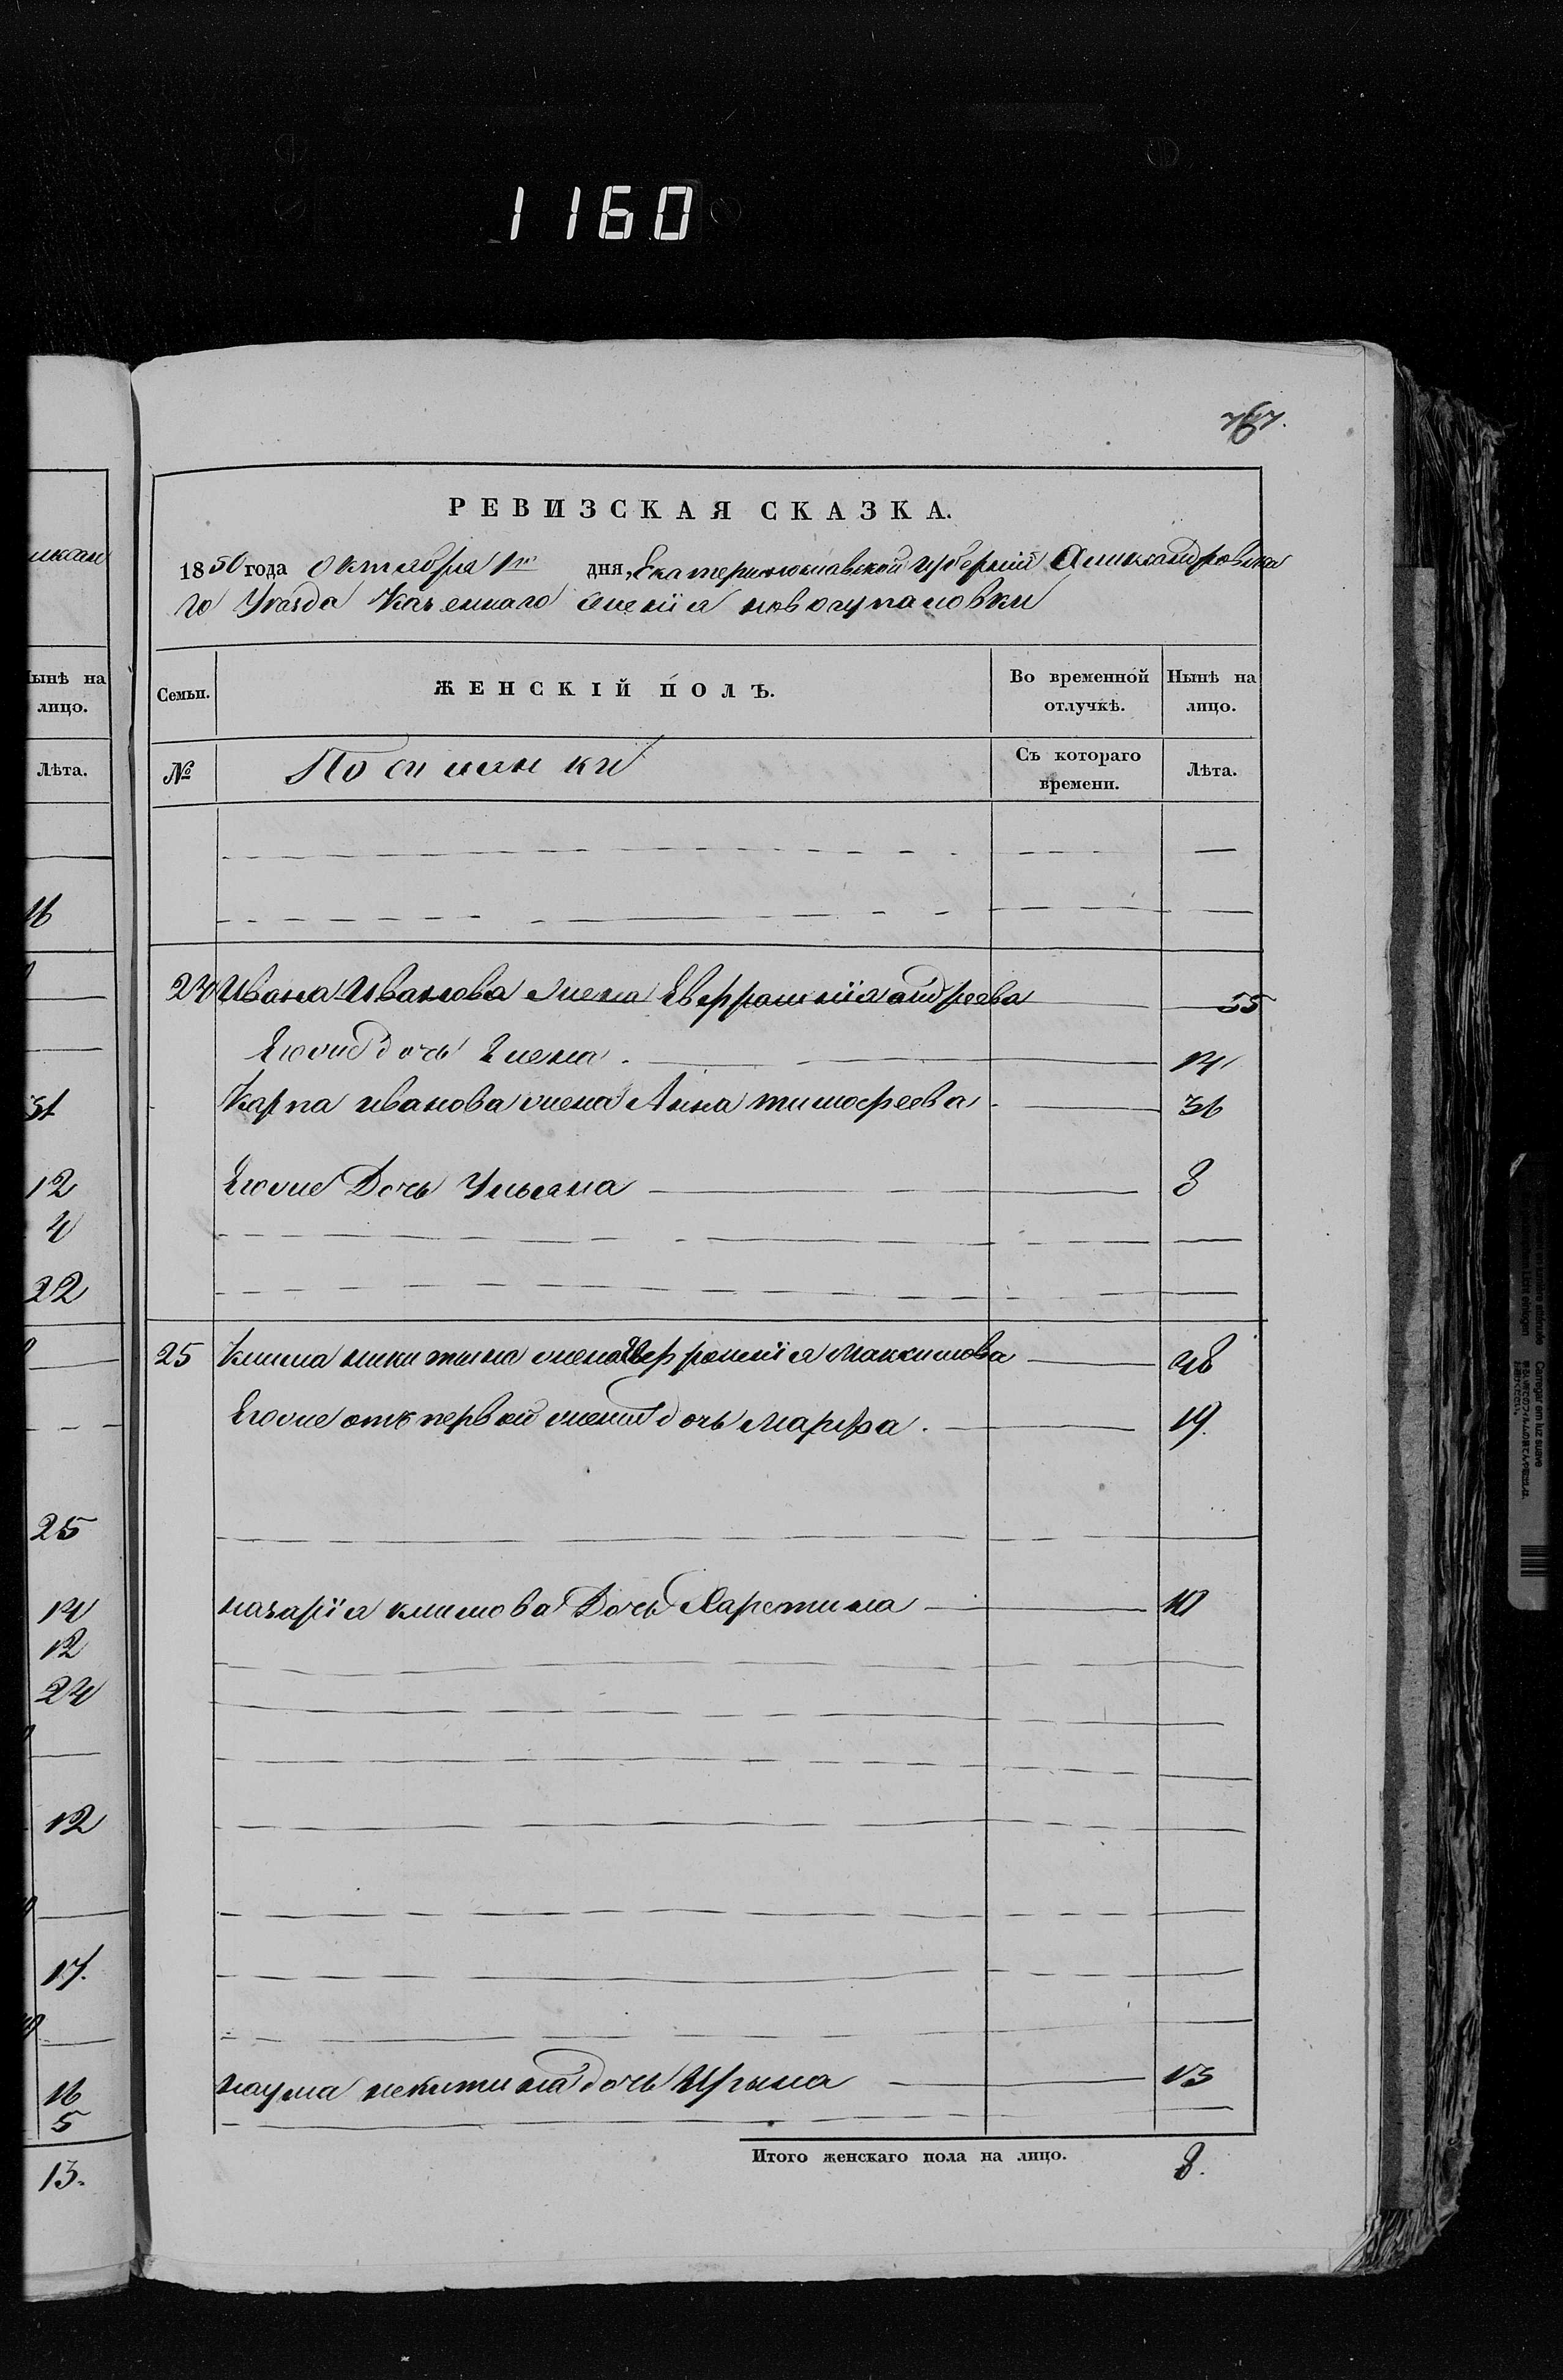 1160
767.
РЕВИЗСКАЯ СКАЗКА.
1850 года Октября 1го дня, Екатеринославской губерній Аликсандровска
го Уезда Казеннаго Новогупаловки
Семьи.
ЖЕНСКІЙ ПОЛЪ.
Во временной отлучкѣ.
Нынѣ на лицо.
№
Съ котораго времени.
Лѣта.
24 Ивана Иванова жена Евфрасинія андреева 55
Егоже дочь Елена. 14
Карпа иванова жена Анна тимофеева 36
Егоже Дочь Ульяна 8
25 Клима никитина жена Максимова 48
Егоже отъ первой жены дочь марфа. 19.
назарія климова Дочь Харетина 10
наума некитина дочь Ирына 13
Итого женскаго пола на лицо. 8.
Нынѣ на лицо.
Лѣта.
16
31
12
4
22
25
14
12
24
12
17.
16
5
13.